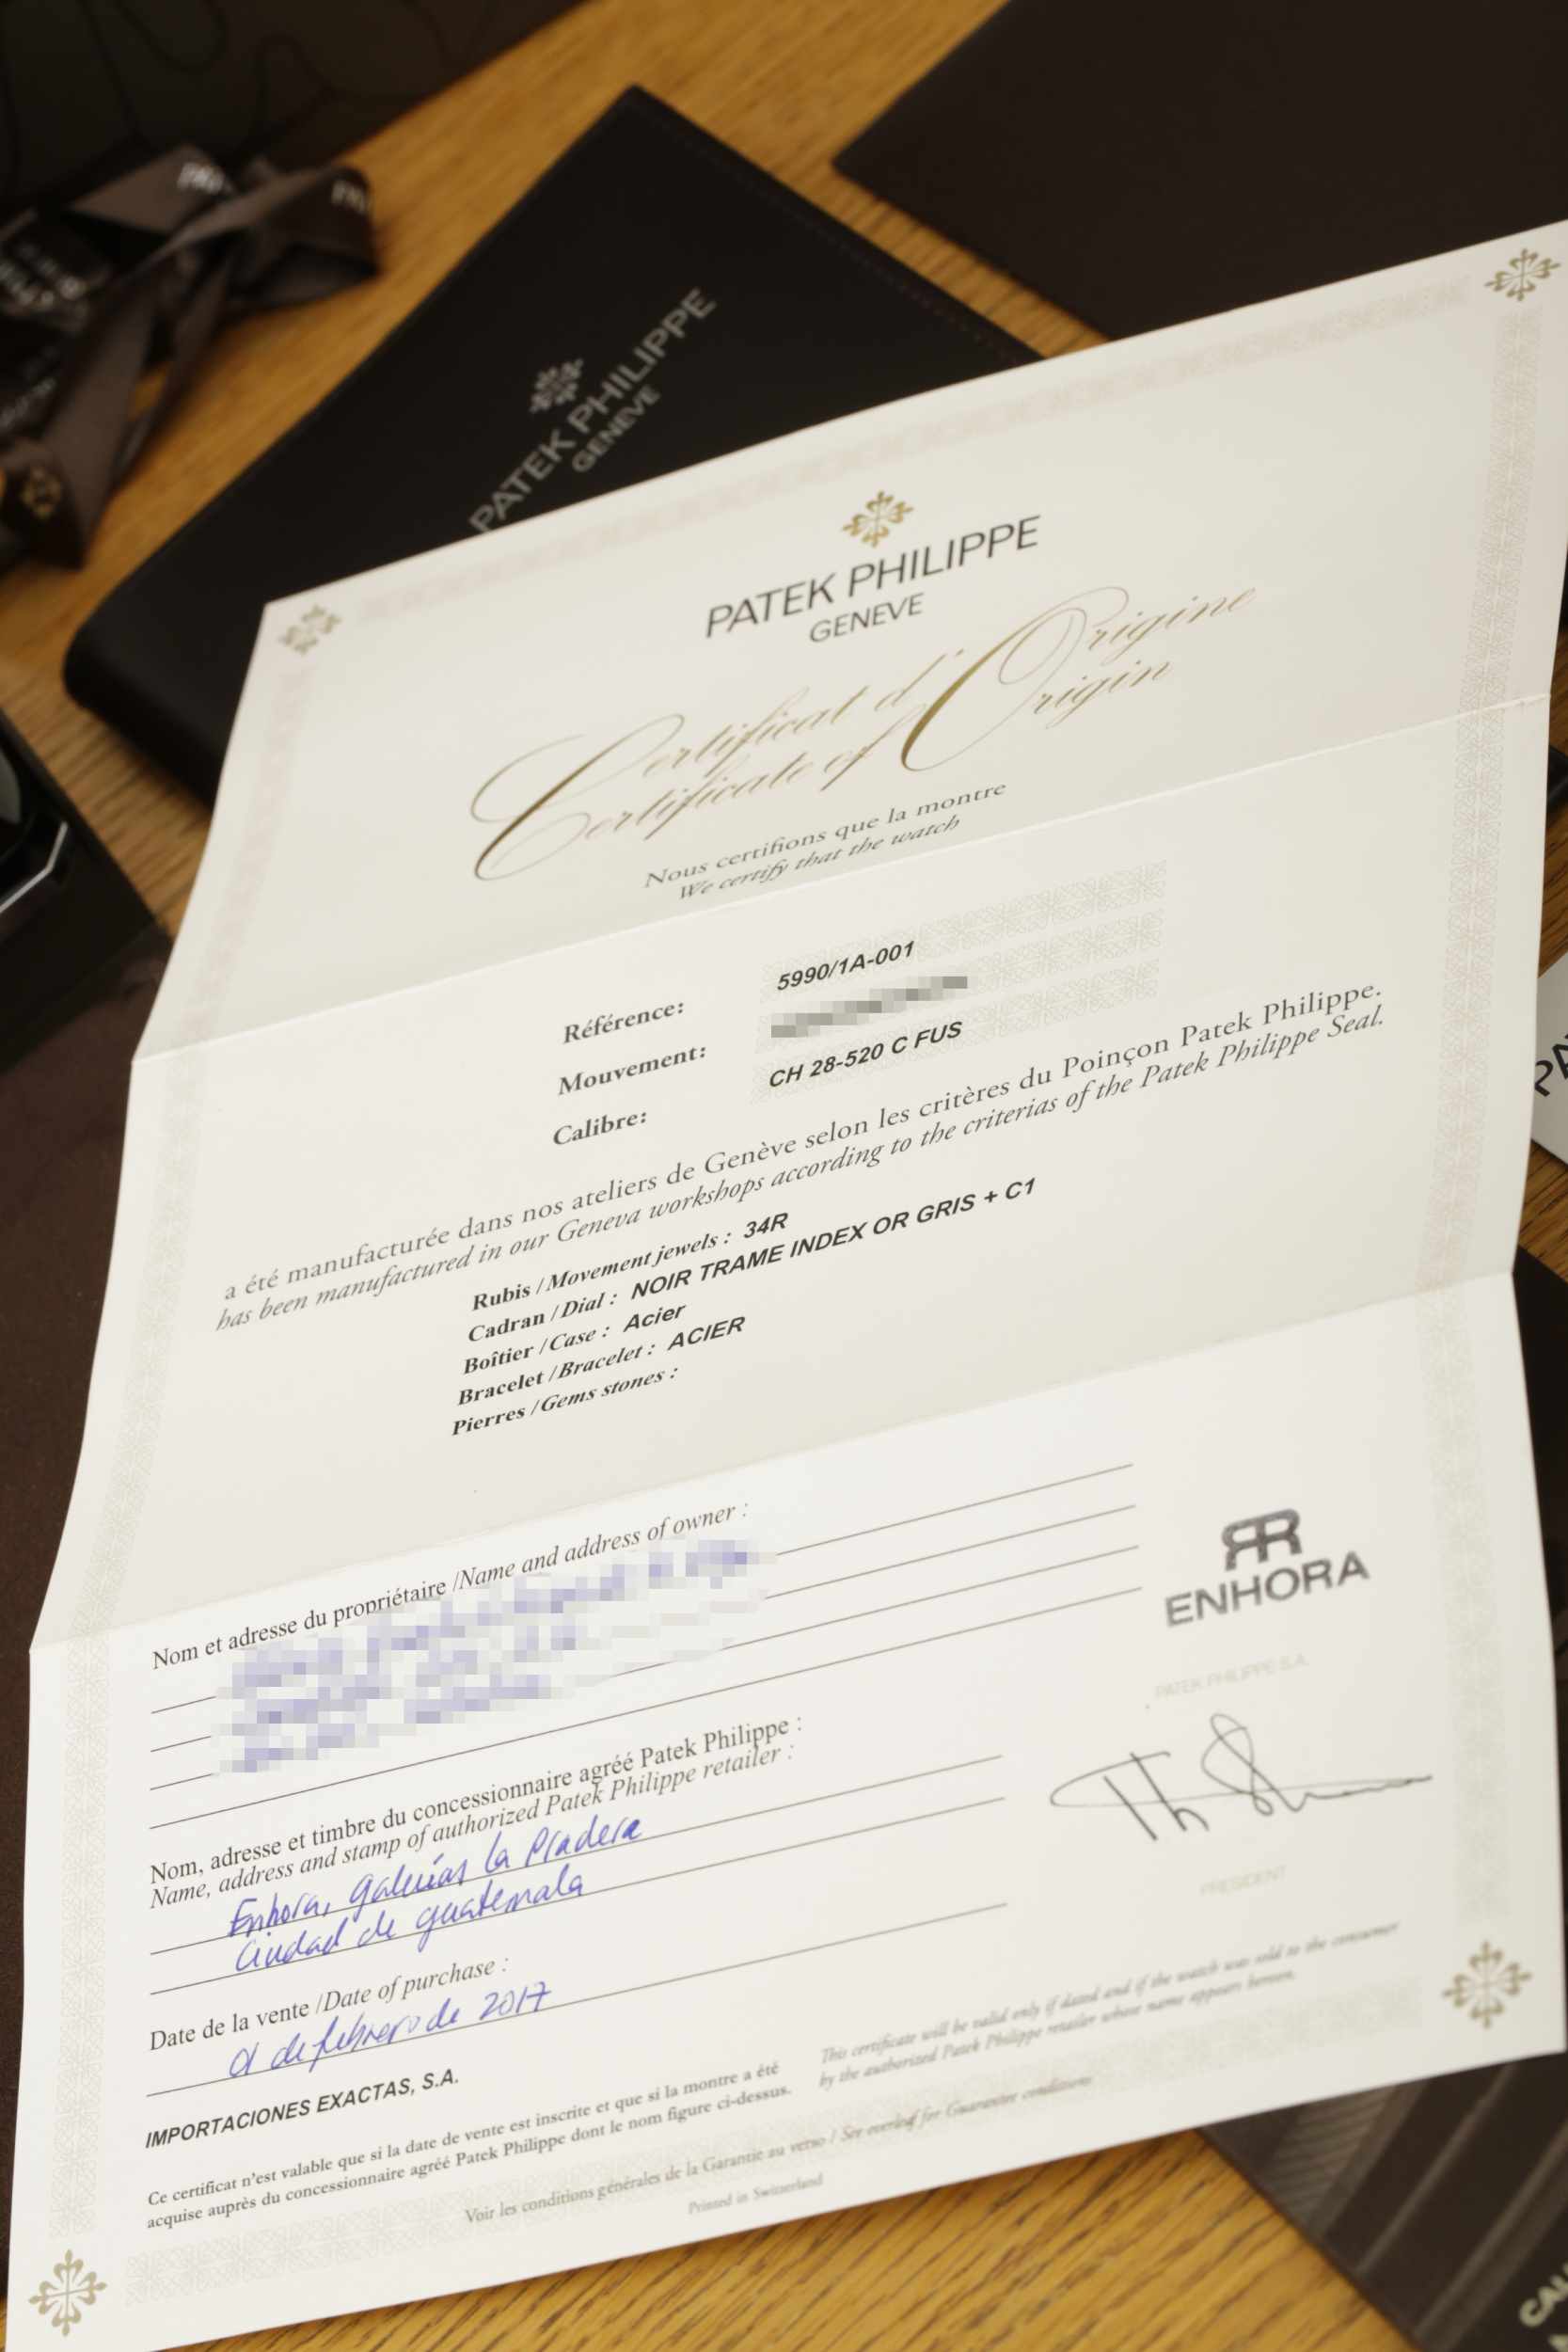 PATEK PHILIPPE
GENEVE
PATEK PHILIPPE
GENEVE
Certificat d'Origine
Certificate of Origin
Nous certifions que la montre
We certify that the watch
Référence: 5990/1A-001
Mouvement:
Calibre: CH 28-520 C FUS
a été manufacturée dans nos ateliers de Genève selon les critères du Poinçon Patek Philippe.
has been manufactured in our Geneva workshops according to the criterias of the Patek Philippe Seal.
Rubis / Movement jewels : 34R
Cadran / Dial : NOIR TRAME INDEX OR GRIS + C1
Boîtier / Case : Acier
Bracelet / Bracelet : ACIER
Pierres / Gems stones :
Nom et adresse du propriétaire / Name and address of owner :
ENHORA
PATEK PHILIPPE S.A.
Nom, adresse et timbre du concessionnaire agréé Patek Philippe :
Name, address and stamp of authorized Patek Philippe retailer :
Enhora, Galerías La Pradera
Ciudad de Guatemala
PRESIDENT
Date de la vente / Date of purchase :
de febrero de 2017
IMPORTACIONES EXACTAS, S.A.
Ce certificat n'est valable que si la date de vente est inscrite et que si la montre a été
acquise auprès du concessionnaire agréé Patek Philippe dont le nom figure ci-dessus.
This certificate will be valid only if dated and if the watch was sold to the consumer
by the authorized Patek Philippe retailer whose name appears hereon.
Voir les conditions générales de la Garantie au verso / See overleaf for Guarantee conditions
Printed in Switzerland